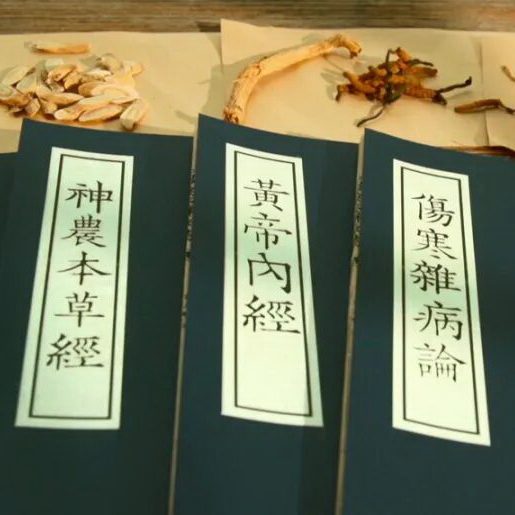 神農本草經
黃帝內經
傷寒雜病論